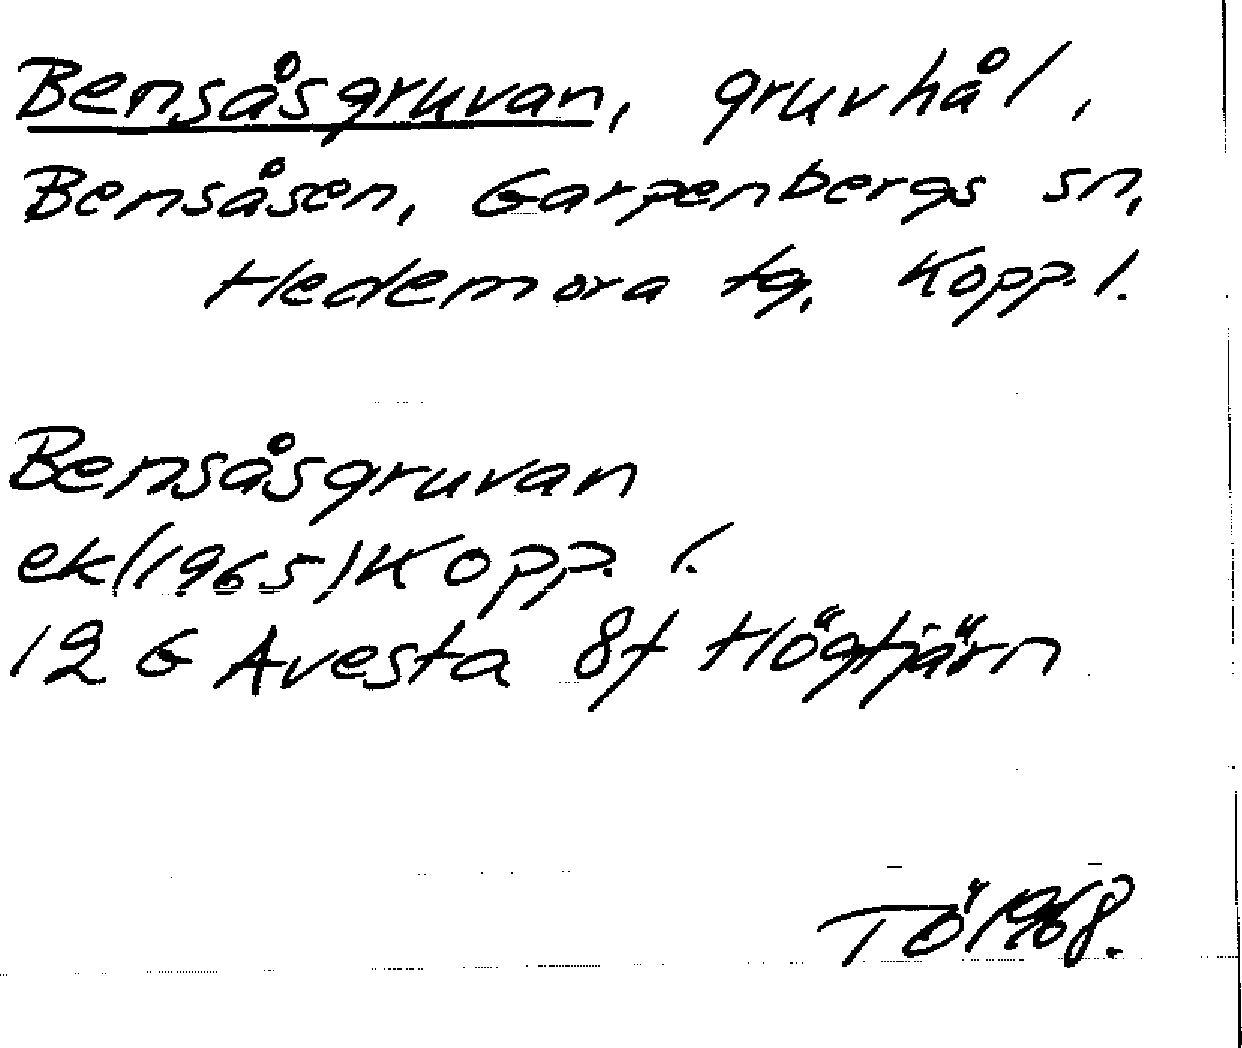 Bensåsgruvan, gruvhål,
Bensåsen, Garpenbergs sn,
Hedemora tg, Kopp. l.
Bensåsgruvan
ek(1965)Kopp. l.
12 G Avesta 8f Högtjärn
TÖ 1968.